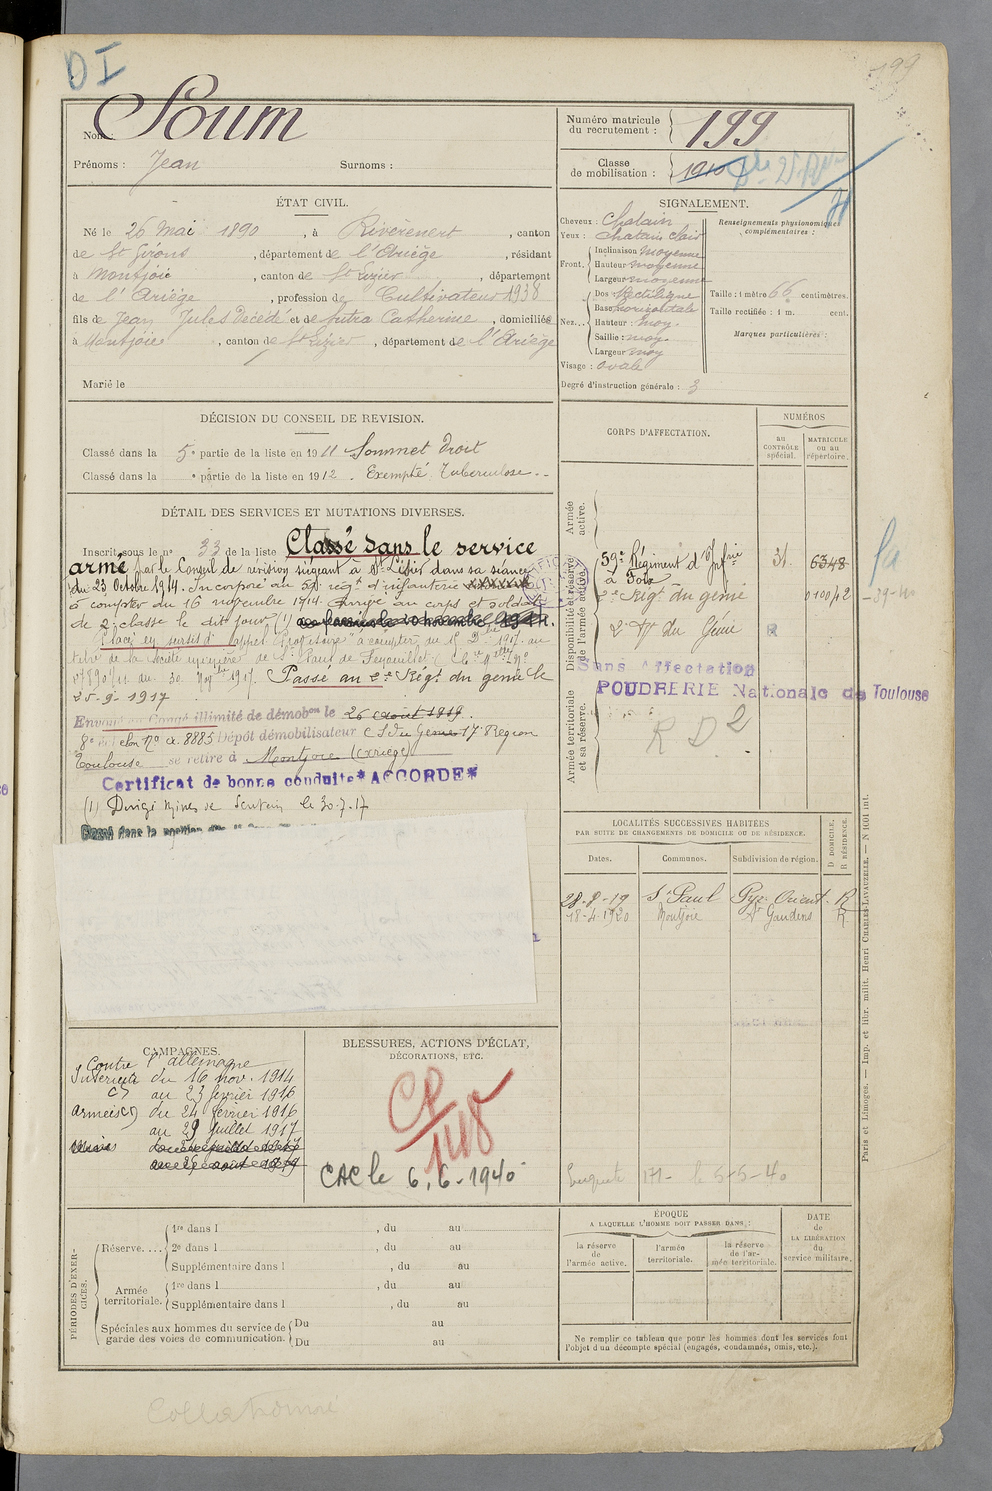 DI
199
Nom: Soum
Prénoms : Jean Surnoms :
Numéro matricule du recrutement : 199
Classe de mobilisation : 1910
ÉTAT CIVIL.
Né le 26 Mai 1890, à Rivèrenert, canton
de St Girons, département de l'Ariège, résidant
à Montjoie, canton de St Lizier, département
de l'Ariège, profession de Cultivateur 1938
fils de Jean Jules décédé et de Sutra Catherine, domiciliés
à Montjoie, canton de St Lizier, département de l'Ariège
Marié le
SIGNALEMENT.
Cheveux : Chatain
Yeux : Chatain clair
Front. Inclinaison moyenne
Hauteur moyenne
Largeur moyenne
Nez... Dos Rectiligne
Base horizontale
Hauteur : moy.
Saillie : moy.
Largeur moy
Visage : ovale
Degré d'instruction générale : 3
Renseignements physionomiques complémentaires :
Taille : 1 mètre 66 centimètres.
Taille rectifiée : 1 m. cent.
Marques particulières :
DÉCISION DU CONSEIL DE REVISION.
Classé dans la 5e partie de la liste en 1911 Sommet droit
Classé dans la e partie de la liste en 1912. Exempté. Tuberculose.
DÉTAIL DES SERVICES ET MUTATIONS DIVERSES.
Inscrit sous le no 33 de la liste Classé dans le service
armé par le Conseil de révision siégeant à St Lizier dans sa séance
du 23 Octobre 1914. Incorporé au 59e régt d'infanterie
à compter du 16 novembre 1914. Arrivé au corps et soldat
de 2e classe le dit jour (1)
Placé en sursis d'appel
Passé au 2e Régt du génie le
25-9-1917
Envoyé en Congé illimité de démobon le 26 août 1919.
8e échelon No a. 8885 Dépôt démobilisateur 17e Région
Toulouse se retire à Montjoie (Ariège)
Certificat de bonne conduite *ACCORDÉ*
(1) Dirigé mines de Sentein le 30-7-17
Classé dans la position
CORPS D'AFFECTATION.
NUMÉROS
au CONTRÔLE spécial.
MATRICULE ou au répertoire.
Armée active.
Disponibilité et réserve de l'armée active.
Armée territoriale et sa réserve.
59e Régiment d'Infrie 31 6348
à Foix
2e Régt du génie 010042
2e Rt du Génie
Sans Affectation
POUDRERIE Nationale de Toulouse
R D 2
LOCALITÉS SUCCESSIVES HABITÉES
PAR SUITE DE CHANGEMENTS DE DOMICILE OU DE RÉSIDENCE.
Dates. Communes. Subdivision de région. D DOMICILE. R RÉSIDENCE.
28-8-19 St Paul Pyr. Orient. R
18-4-1920 Montjoie St Gaudens R
Enquête 171- le 5-5-40
CAMPAGNES.
Contre l'allemagne
Intérieur du 16 nov. 1914
au 23 février 1916
Armées du 24 février 1916
au 29 juillet 1917
BLESSURES, ACTIONS D'ÉCLAT,
DÉCORATIONS, ETC.
CP
CAC le 6.6-1940
PÉRIODES D'EXERCICES.
Réserve.... 1re dans l , du au
2e dans l , du au
Supplémentaire dans l , du au
Armée territoriale. 1re dans l , du au
Supplémentaire dans l , du au
Spéciales aux hommes du service de Du au
garde des voies de communication. Du au
ÉPOQUE
A LAQUELLE L'HOMME DOIT PASSER DANS :
la réserve de l'armée active.
l'armée territoriale.
la réserve de l'armée territoriale.
DATE de LA LIBÉRATION du service militaire.
Ne remplir ce tableau que pour les hommes dont les services font
l'objet d'un décompte spécial (engagés, condamnés, omis, etc.).
Paris et Limoges. — Imp. et libr. milit. Henri CHARLES-LAVAUZELLE. — N 1601 int.
Collationné